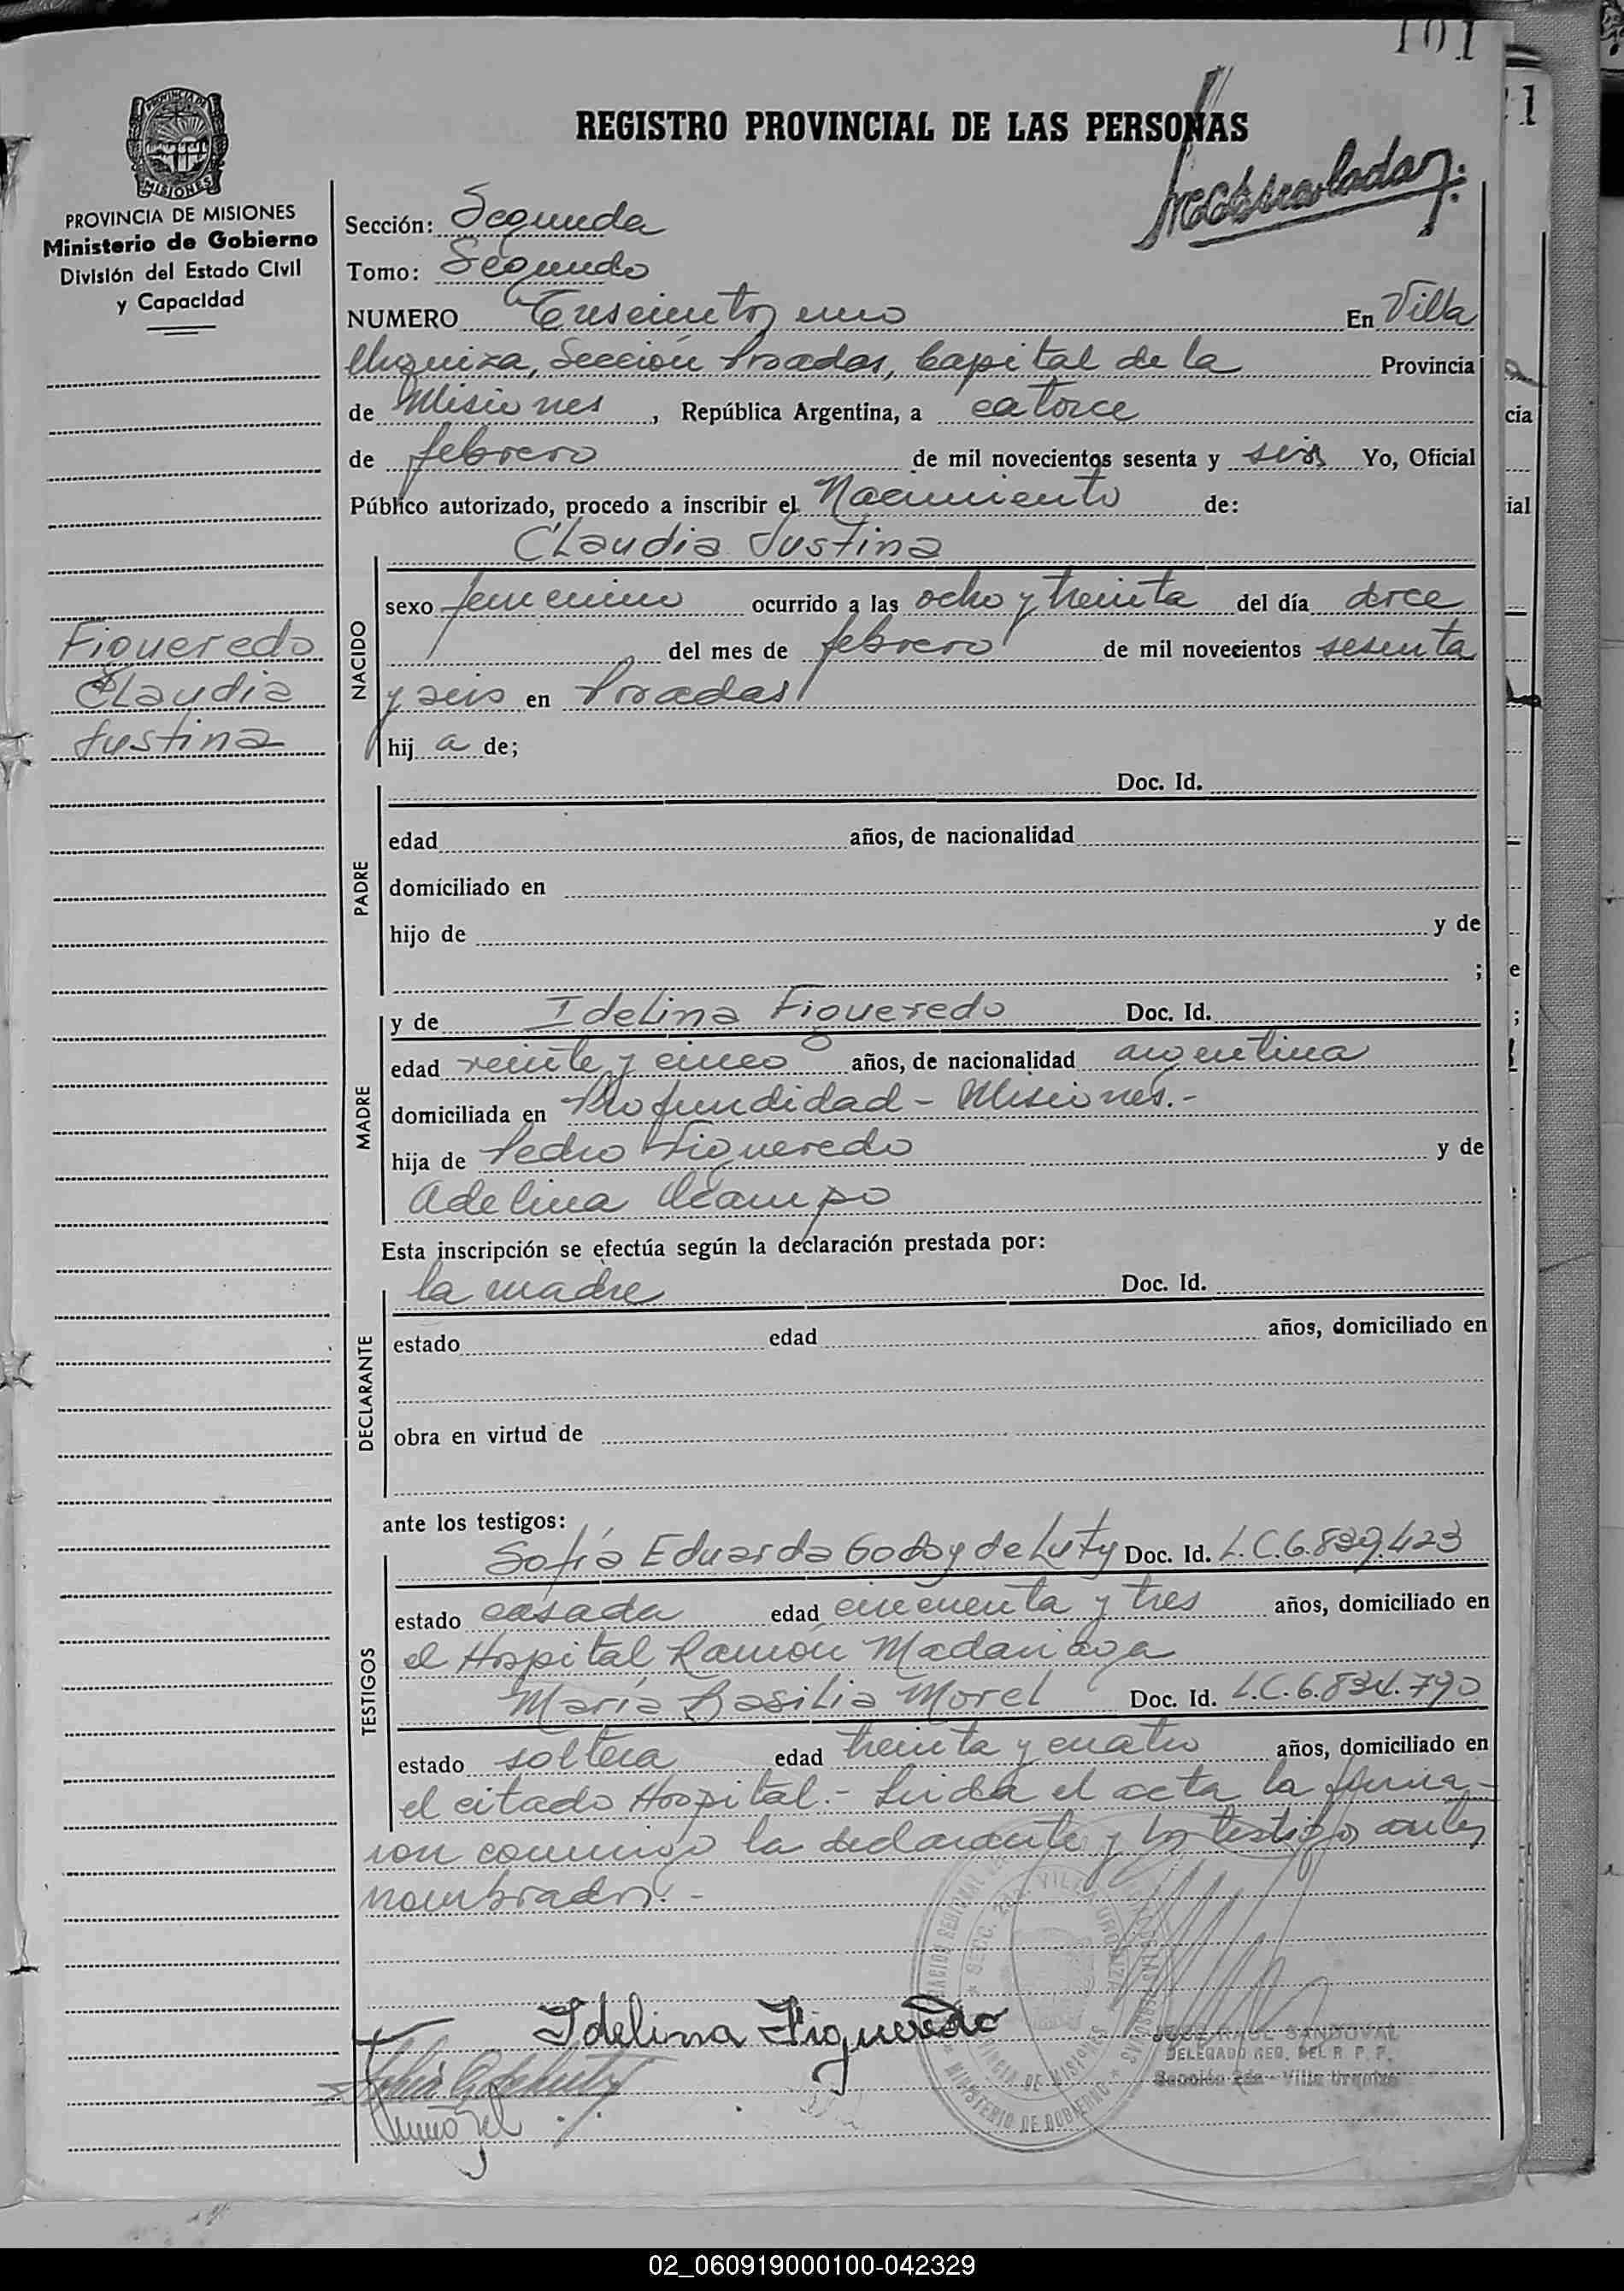 101
REGISTRO PROVINCIAL DE LAS PERSONAS
PROVINCIA DE MISIONES
Ministerio de Gobierno
División del Estado Civil
y Capacidad
Sección: Segunda
Tomo: Segundo
NUMERO Trescientos uno En Villa
Urquiza, Sección Posadas, Capital de la Provincia
de Misiones, República Argentina, a catorce
de febrero de mil novecientos sesenta y seis Yo, Oficial
Público autorizado, procedo a inscribir el Nacimiento de:
Claudia Justina
Figueredo
Claudia
Justina
NACIDO
sexo femenino ocurrido a las ocho y treinta del día doce
del mes de febrero de mil novecientos sesenta
y seis en Posadas
hij a de;
PADRE
Doc. Id.
edad años, de nacionalidad
domiciliado en
hijo de y de
;
MADRE
y de Idelina Figueredo Doc. Id.
edad veinte y cinco años, de nacionalidad argentina
domiciliada en Profundidad - Misiones.-
hija de Pedro Figueredo y de
Adelina Ocampo
Esta inscripción se efectúa según la declaración prestada por:
DECLARANTE
la madre Doc. Id.
estado edad años, domiciliado en
obra en virtud de
ante los testigos:
TESTIGOS
Sofía Eduarda Godoy de Luty Doc. Id. L.C.6.839.423
estado casada edad cincuenta y tres años, domiciliado en
el Hospital Ramón Madariaga
María Basilia Morel Doc. Id. L.C.6.834.790
estado soltera edad treinta y cuatro años, domiciliado en
el citado Hospital.- Leida el acta la firma-
ron conmigo la declarante y los testigos antes
nombrados.-
Idelina Figueredo
JOSE RAUL SANDOVAL
DELEGADO REG. DEL R. P. P.
Sección 2da - Villa Urquiza
02_060919000100-042329